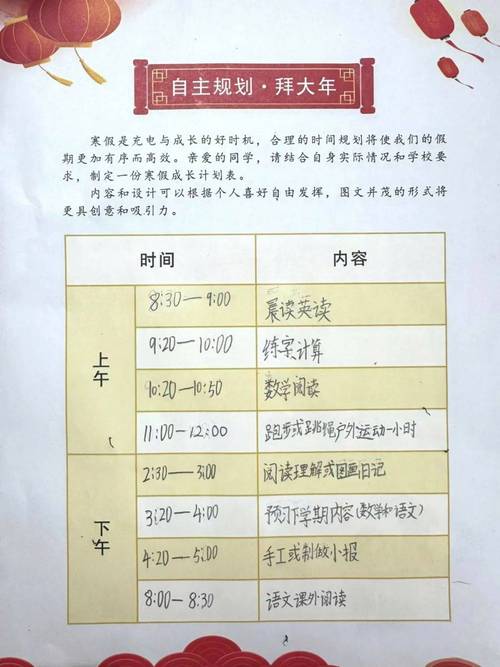 自主规划·拜大年
寒假是充电与成长的好时机，合理的时间规划将使我们的假
期更加有序而高效。亲爱的同学，请结合自身实际情况和学校要
求，制定一份寒假成长计划表。
内容和设计可以根据个人喜好自由发挥，图文并茂的形式将
更具创意和吸引力。
时间 内容
上午
8:30—9:00 晨读英读
9:20—10:00 练字计算
10:20—10:50 数学阅读
11:00—12:00 跑步或跳绳户外运动一小时
下午
2:30—3:00 阅读理解或图画日记
3:20—4:00 预习下学期内容(数学和语文)
4:20—5:00 手工或制做小报
8:00—8:30 语文课外阅读